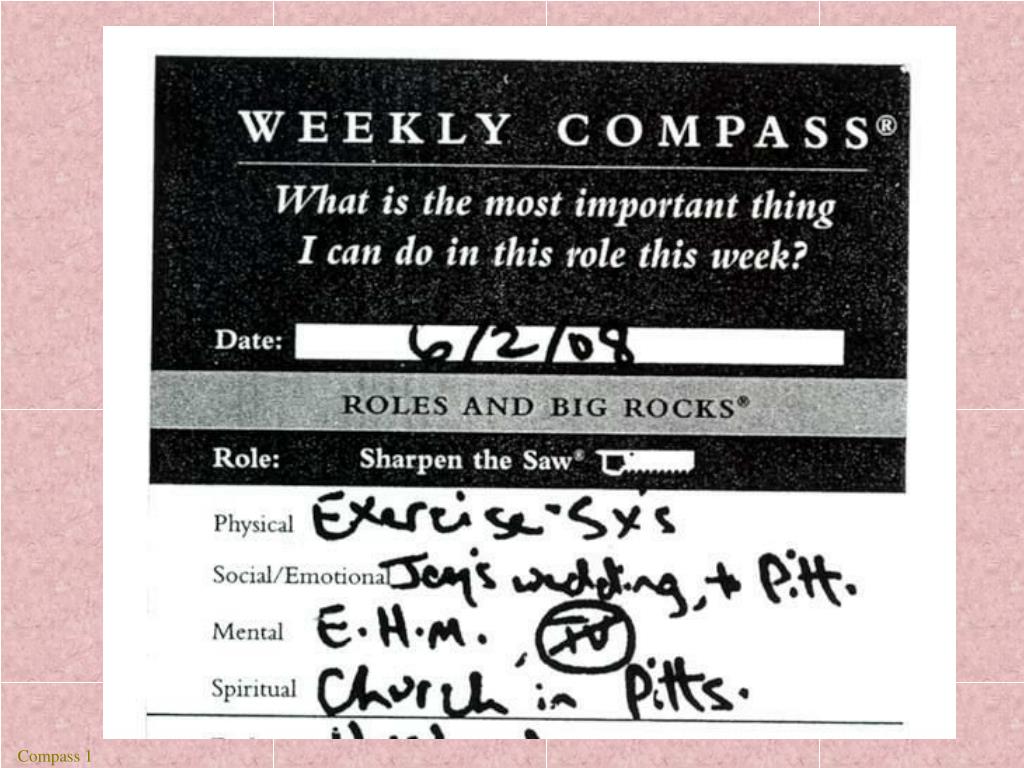 WEEKLY COMPASS®
What is the most important thing
I can do in this role this week?
Date: 6/2/08
ROLES AND BIG ROCKS®
Role: Sharpen the Saw®
Physical Exercise - 5x's
Social/Emotional wedding, to Pitt.
Mental E.H.M.,
Spiritual Church in Pitts.
Compass 1